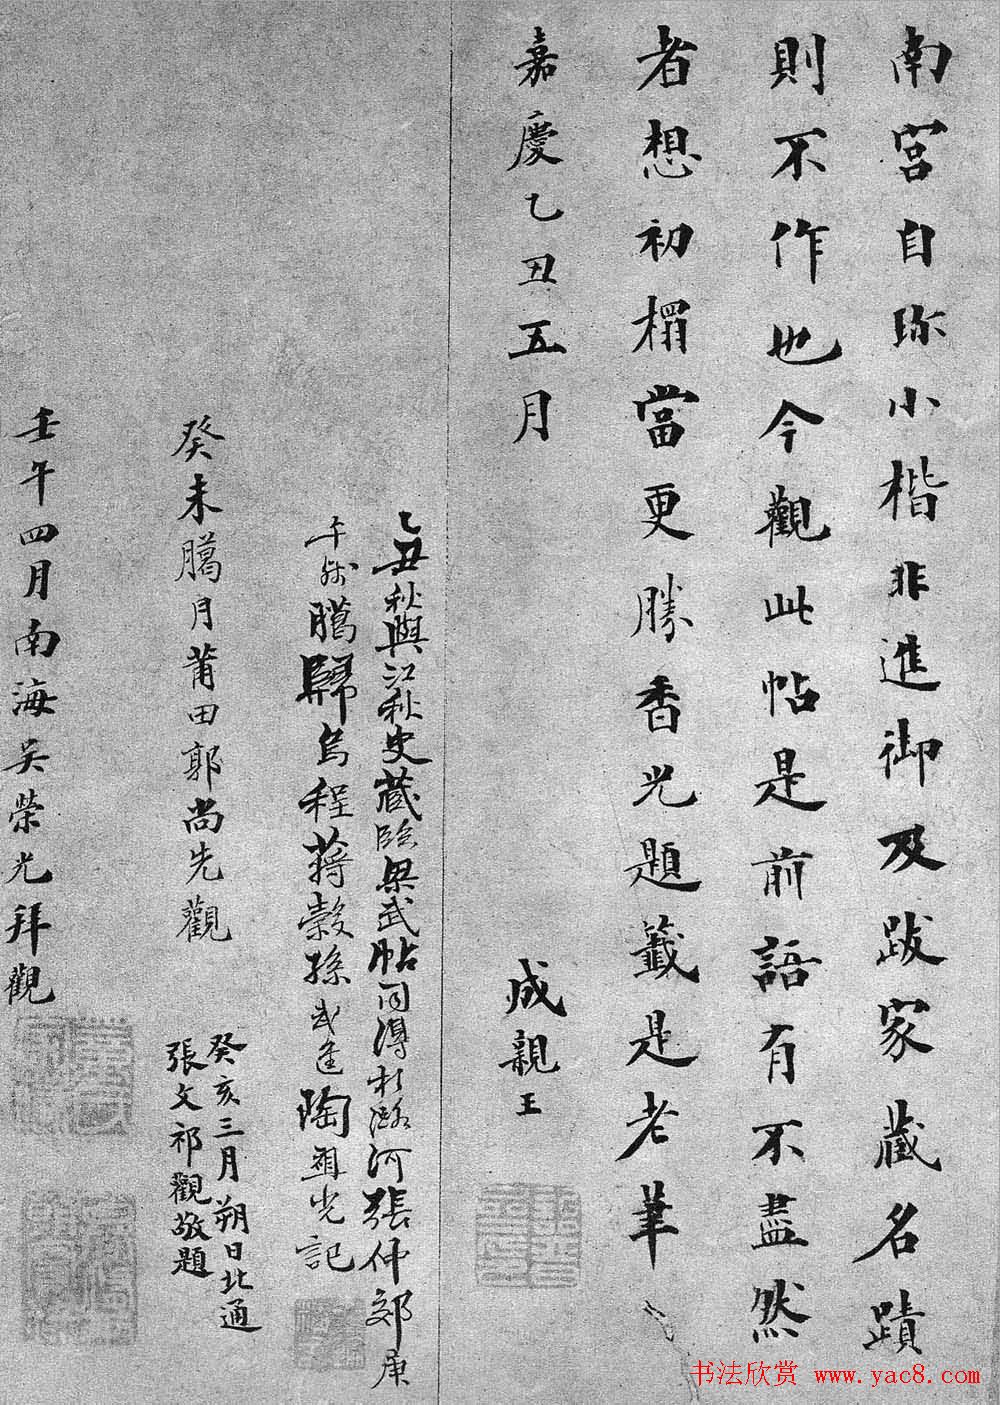 南宮自珎小楷非進御及跋家藏名蹟
則不作也今觀此帖是前語有不盡然
者想初榻當更勝香光題籤是老筆
嘉慶乙丑五月
成親王
乙丑秋與江秋史藏臨梁武帖同得於潞河張仲郊庚
午殘臈歸烏程蔣穀孫武進陶祖光記
癸未臈月莆田郭尚先觀
癸亥三月朔日北通
張文祁觀敬題
壬午四月南海吴榮光拜觀
书法欣赏 www.yac8.com